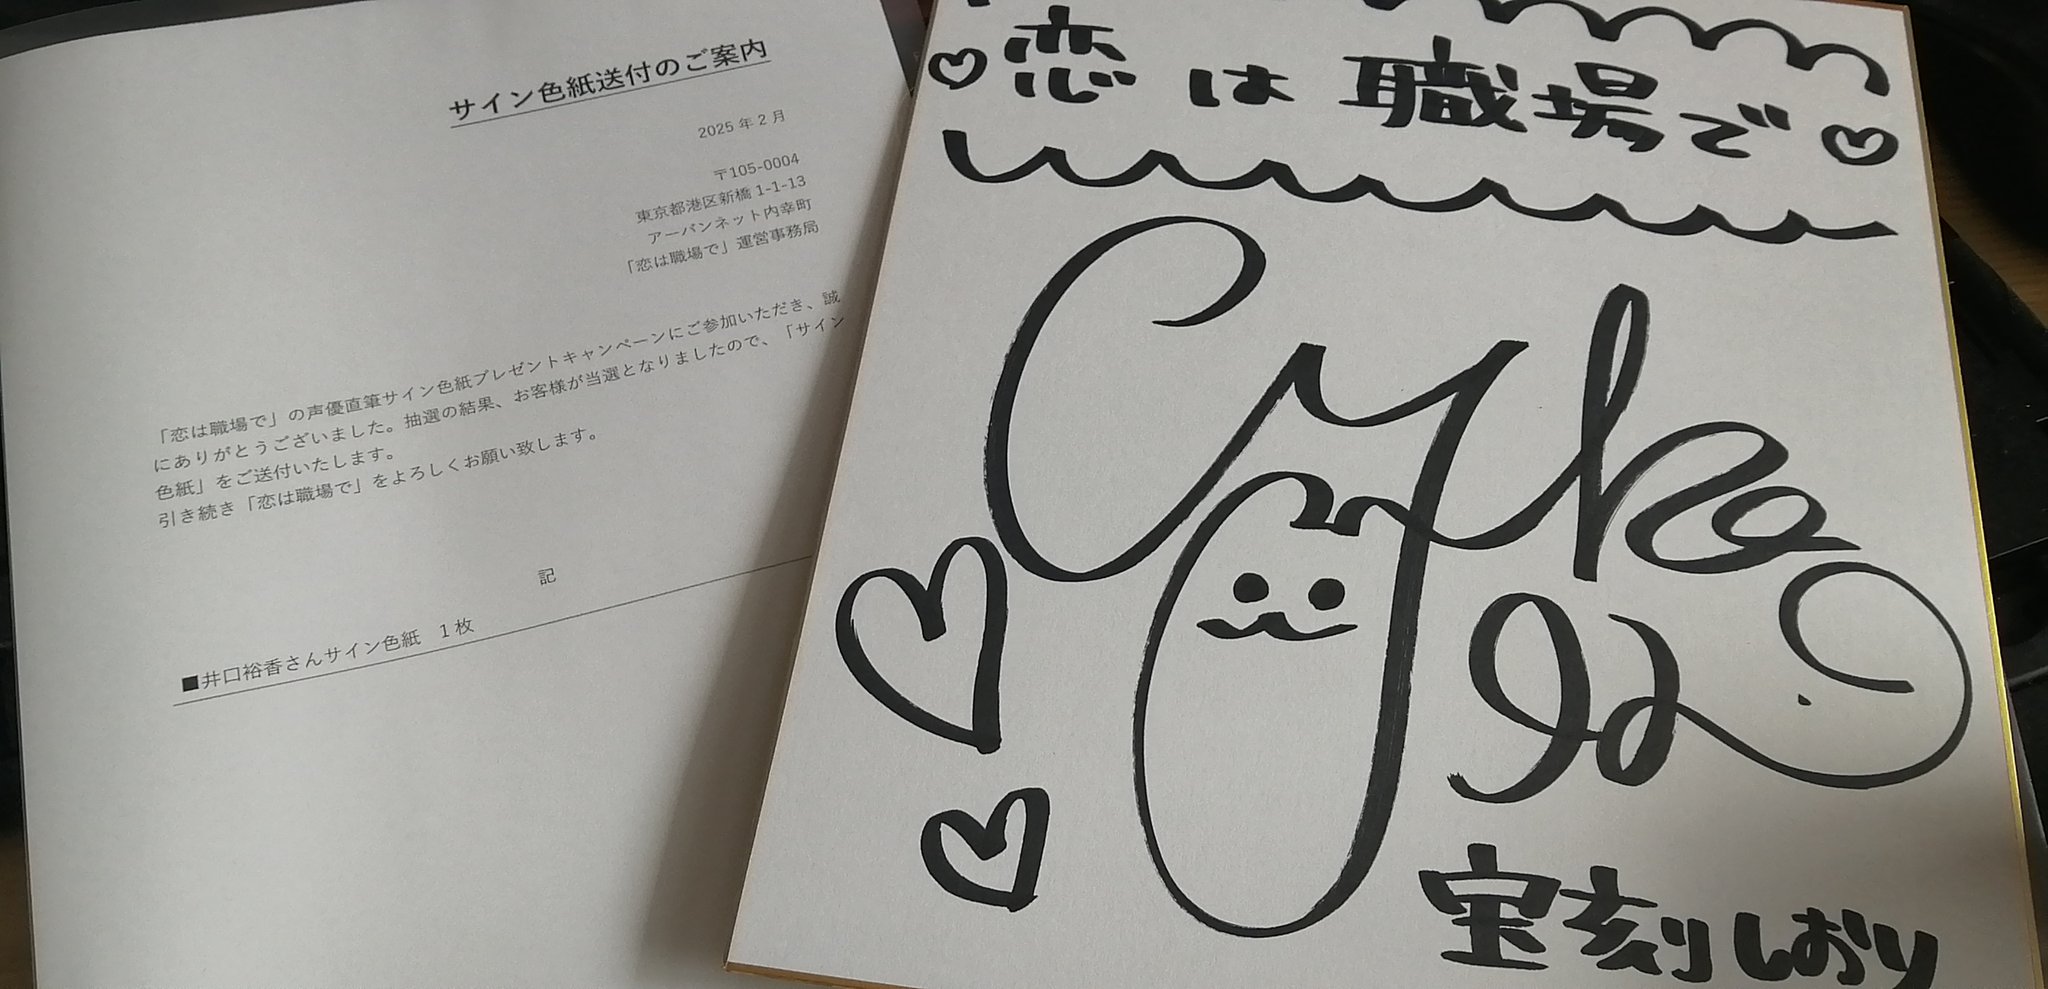 サイン色紙送付のご案内
2025年2月
〒105-0004
東京都港区新橋1-1-13
アーバンネット内幸町
「恋は職場で」運営事務局
「恋は職場で」の声優直筆サイン色紙プレゼントキャンペーンにご参加いただき、誠
にありがとうございました。抽選の結果、お客様が当選となりましたので、「サイン
色紙」をご送付いたします。
引き続き「恋は職場で」をよろしくお願い致します。
記
■井口裕香さんサイン色紙 1枚
♡恋は職場で♡
宝刻しおり